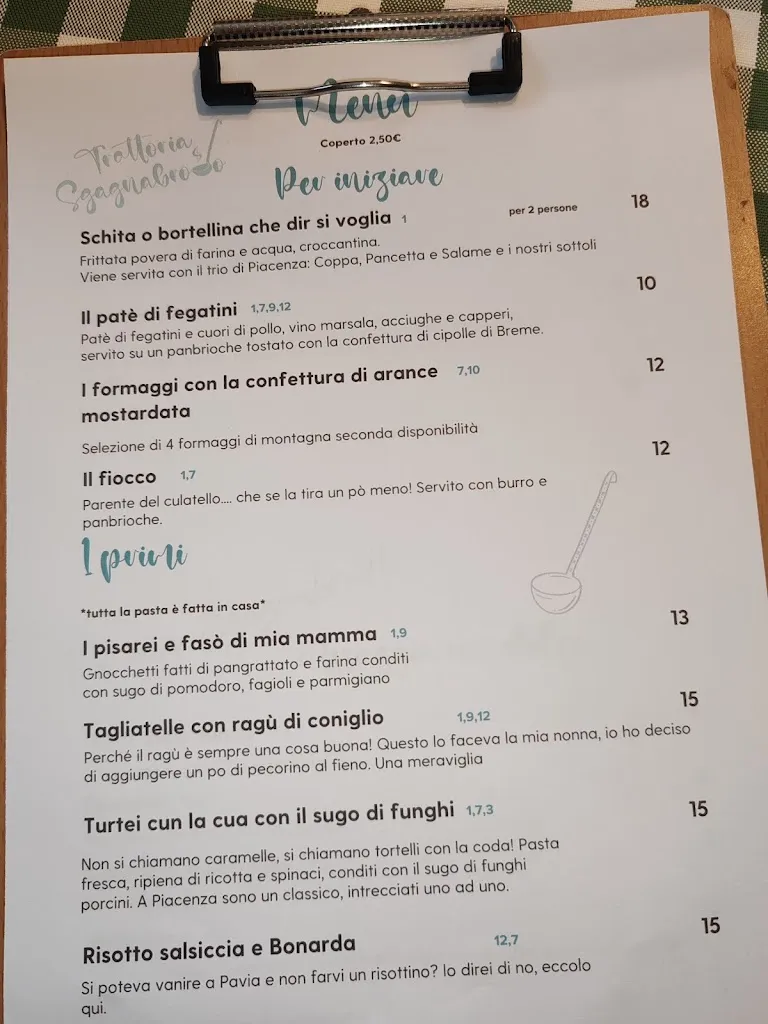 Menu
Coperto 2,50€
Trattoria
Sgagnabroso
Per iniziare
Schita o bortellina che dir si voglia 1 per 2 persone 18
Frittata povera di farina e acqua, croccantina.
Viene servita con il trio di Piacenza: Coppa, Pancetta e Salame e i nostri sottoli
Il patè di fegatini 1,7,9,12 10
Patè di fegatini e cuori di pollo, vino marsala, acciughe e capperi,
servito su un panbrioche tostato con la confettura di cipolle di Breme.
I formaggi con la confettura di arance 7,10 12
mostardata
Selezione di 4 formaggi di montagna seconda disponibilità
Il fiocco 1,7 12
Parente del culatello.... che se la tira un pò meno! Servito con burro e
panbrioche.
I primi
*tutta la pasta è fatta in casa*
I pisarei e fasò di mia mamma 1,9 13
Gnocchetti fatti di pangrattato e farina conditi
con sugo di pomodoro, fagioli e parmigiano
Tagliatelle con ragù di coniglio 1,9,12 15
Perché il ragù è sempre una cosa buona! Questo lo faceva la mia nonna, io ho deciso
di aggiungere un po di pecorino al fieno. Una meraviglia
Turtei cun la cua con il sugo di funghi 1,7,3 15
Non si chiamano caramelle, si chiamano tortelli con la coda! Pasta
fresca, ripiena di ricotta e spinaci, conditi con il sugo di funghi
porcini. A Piacenza sono un classico, intrecciati uno ad uno.
Risotto salsiccia e Bonarda 12,7 15
Si poteva vanire a Pavia e non farvi un risottino? Io direi di no, eccolo
qui.